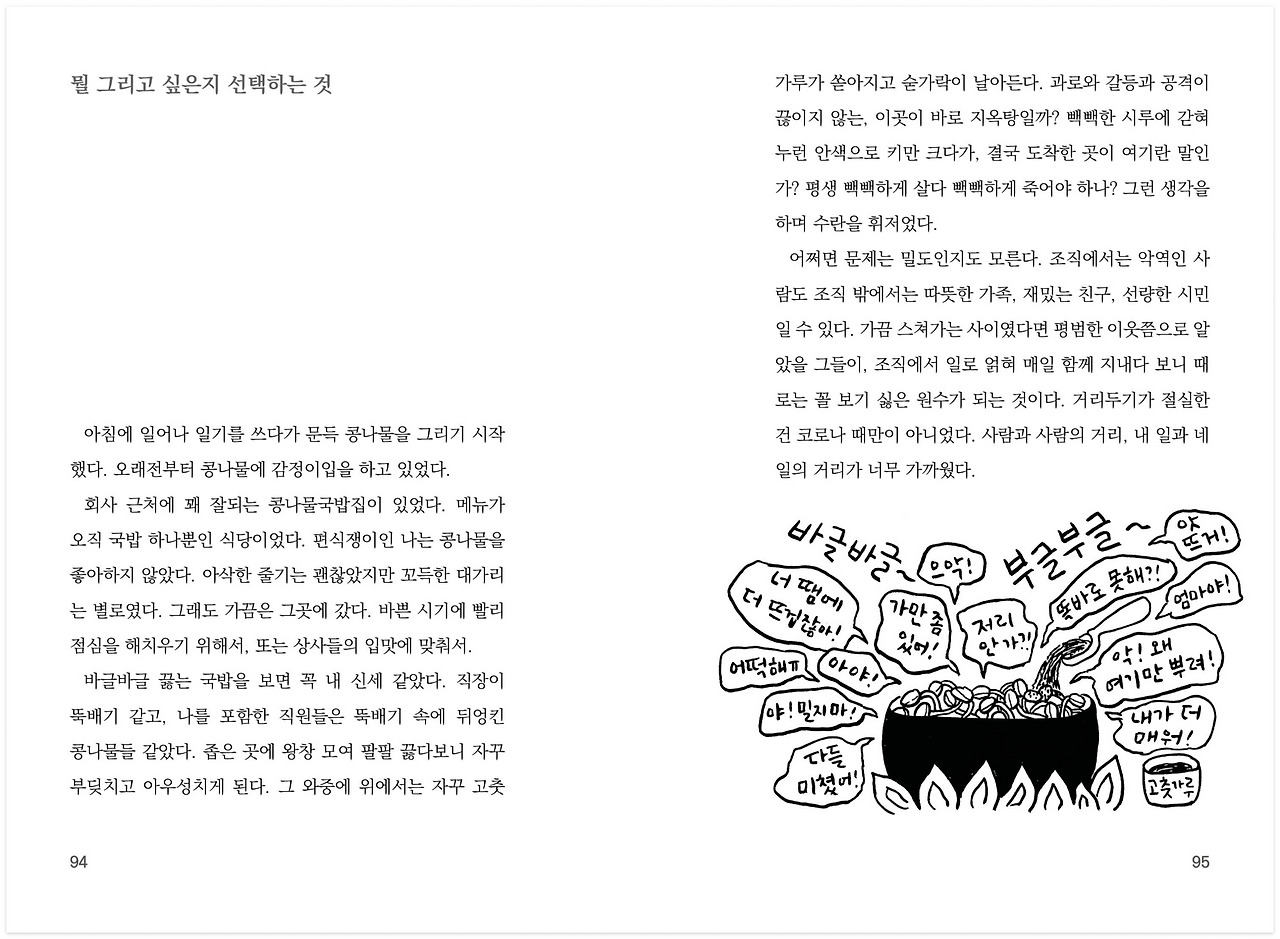 뭘 그리고 싶은지 선택하는 것
아침에 일어나 일기를 쓰다가 문득 콩나물을 그리기 시작
했다. 오래전부터 콩나물에 감정이입을 하고 있었다.
회사 근처에 꽤 잘되는 콩나물국밥집이 있었다. 메뉴가
오직 국밥 하나뿐인 식당이었다. 편식쟁이인 나는 콩나물을
좋아하지 않았다. 아삭한 줄기는 괜찮았지만 꼬득한 대가리
는 별로였다. 그래도 가끔은 그곳에 갔다. 바쁜 시기에 빨리
점심을 해치우기 위해서, 또는 상사들의 입맛에 맞춰서.
바글바글 끓는 국밥을 보면 꼭 내 신세 같았다. 직장이
뚝배기 같고, 나를 포함한 직원들은 뚝배기 속에 뒤엉킨
콩나물들 같았다. 좁은 곳에 왕창 모여 팔팔 끓다보니 자꾸
부딪치고 아우성치게 된다. 그 와중에 위에서는 자꾸 고춧
94
가루가 쏟아지고 숟가락이 날아든다. 과로와 갈등과 공격이
끊이지 않는, 이곳이 바로 지옥탕일까? 빽빽한 시루에 갇혀
누런 안색으로 키만 크다가, 결국 도착한 곳이 여기란 말인
가? 평생 빽빽하게 살다 빽빽하게 죽어야 하나? 그런 생각을
하며 수란을 휘저었다.
어쩌면 문제는 밀도인지도 모른다. 조직에서는 악역인 사
람도 조직 밖에서는 따뜻한 가족, 재밌는 친구, 선량한 시민
일 수 있다. 가끔 스쳐가는 사이였다면 평범한 이웃쯤으로 알
았을 그들이, 조직에서 일로 얽혀 매일 함께 지내다 보니 때
로는 꼴 보기 싫은 원수가 되는 것이다. 거리두기가 절실한
건 코로나 때만이 아니었다. 사람과 사람의 거리, 내 일과 네
일의 거리가 너무 가까웠다.
바글바글~
부글부글~
앗
뜨거!
으악!
너 땜에
더 뜨겁잖아!
가만 좀
있어!
저리
안 가?!
똑바로 못해?!
엄마야!
어떡해ㅠ
아야!
악! 왜
여기만 뿌려!
야! 밀지마!
내가 더
매워!
다들
미쳤어!
고춧가루
95